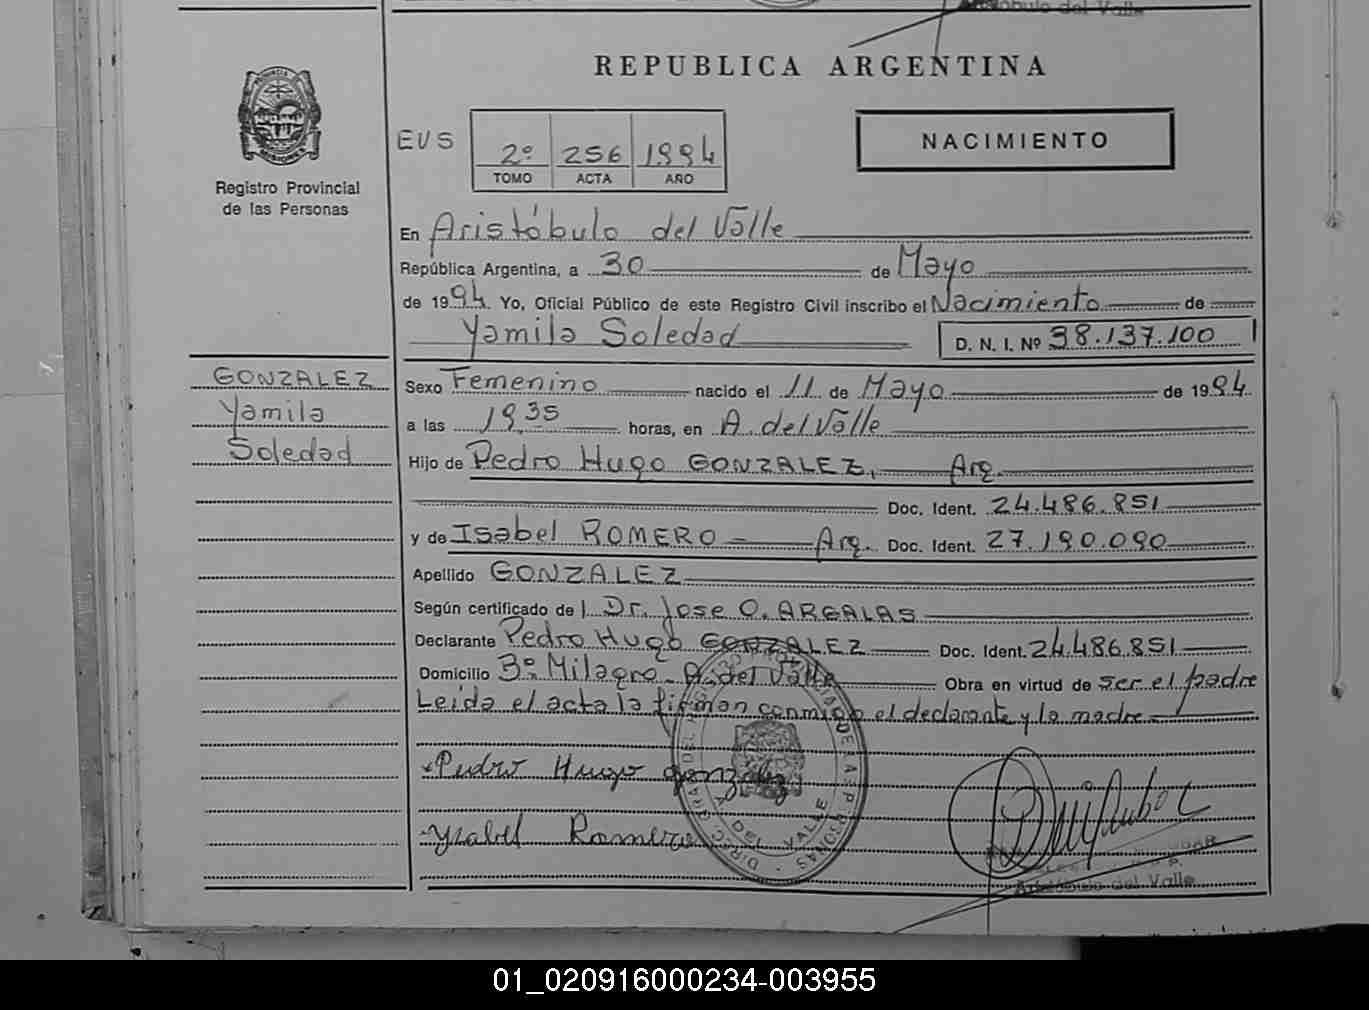 Aristóbulo del Valle
REPUBLICA ARGENTINA
PROVINCIA DE MISIONES
Registro Provincial
de las Personas
EVS
2º 256 1994
TOMO ACTA AÑO
NACIMIENTO
En Aristóbulo del Valle
República Argentina, a 30 de Mayo
de 1994. Yo, Oficial Público de este Registro Civil inscribo el Nacimiento de
Yamila Soledad D. N. I. Nº 38.137.100
GONZALEZ
Yamila
Soledad
Sexo Femenino nacido el 11 de Mayo de 1994
a las 19,35 horas, en A. del Valle
Hijo de Pedro Hugo GONZALEZ, Arg.
Doc. Ident. 24.486.851
y de Isabel ROMERO Arg. Doc. Ident. 27.190.090
Apellido GONZALEZ
Según certificado de l Dr. Jose O. ARGALAS
Declarante Pedro Hugo GONZALEZ Doc. Ident. 24.486.851
Domicilio Bº Milagro - A. del Valle Obra en virtud de ser el padre
Leída el acta la firman conmigo el declarante y la madre.
Pedro Hugo gonzalez
Ysabel Romero
A. DEL VALLE
Aristóbulo del Valle
01_020916000234-003955